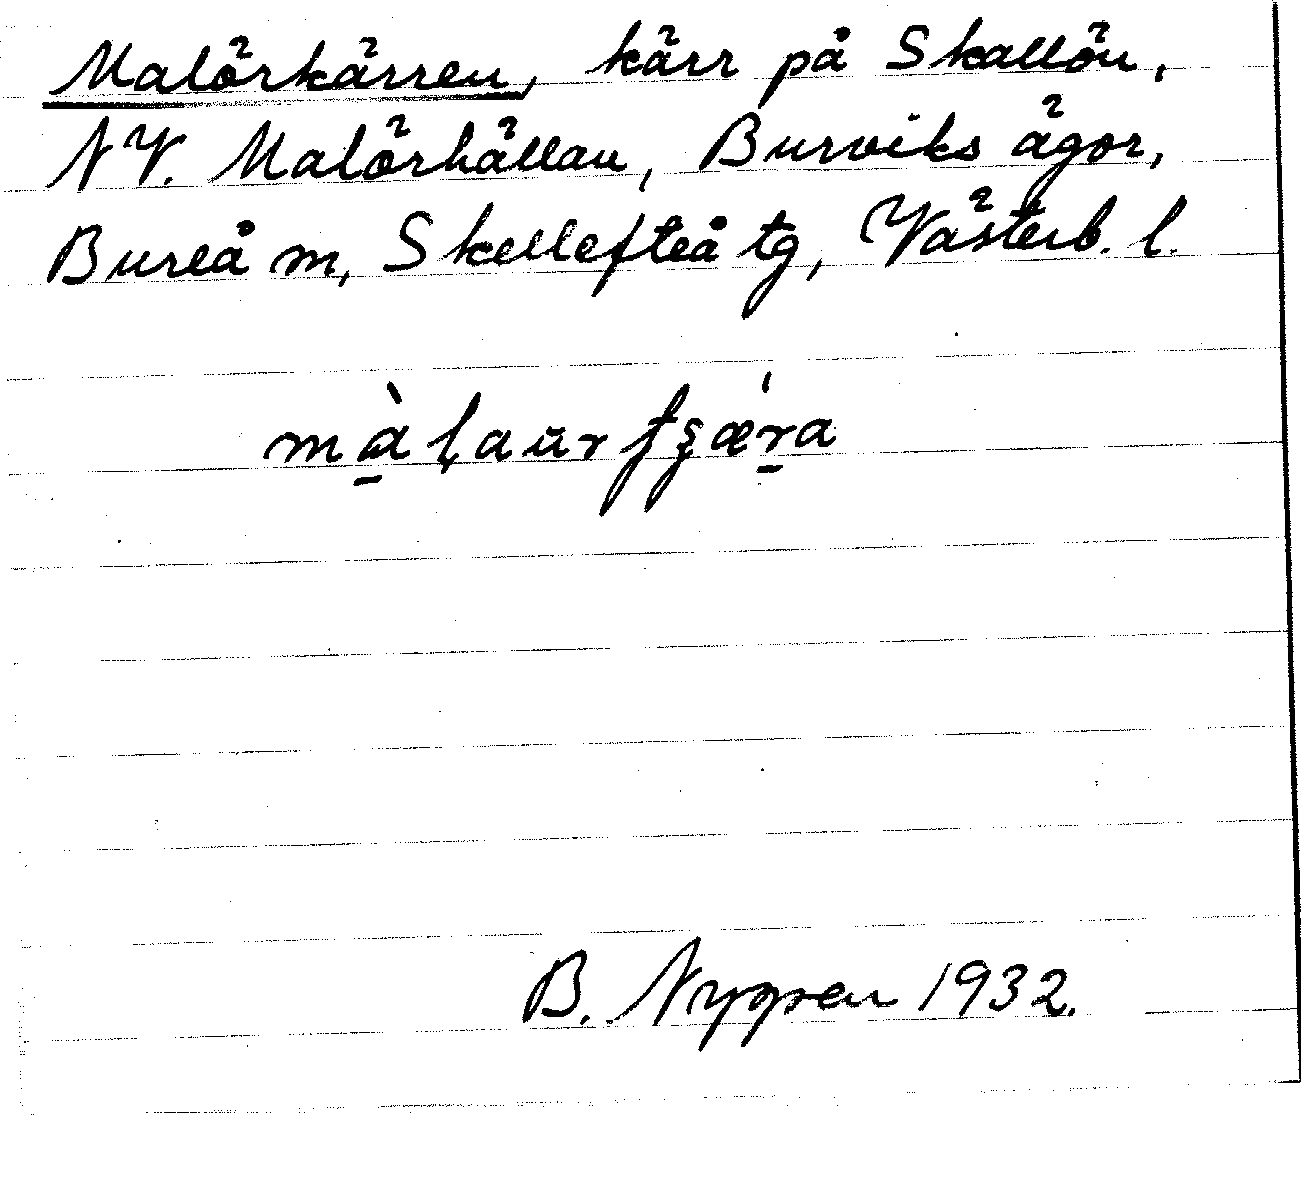 Malörkärren, kärr på Skallön,
NV. Malörhällan, Burviks ägor,
Bureå m, Skellefteå tg, Västerb. l.
mà̱ḷau̅rſʂǽ̱ra
B. Nygren 1932.